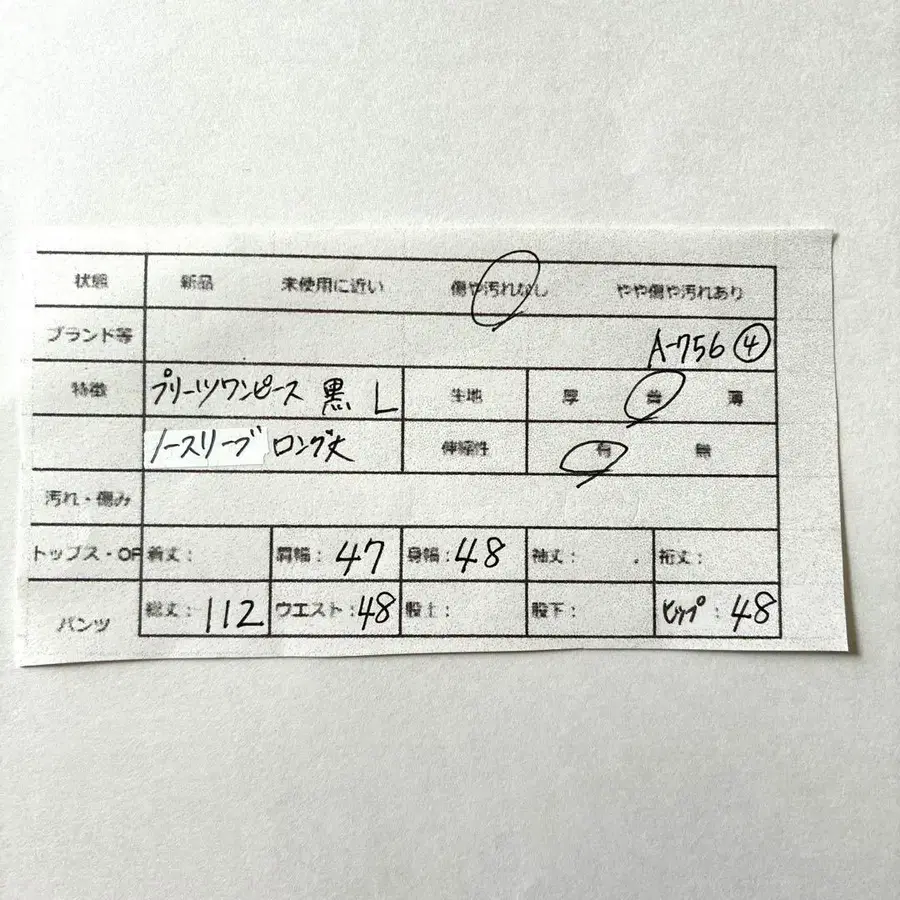 状態 新品 未使用に近い 傷や汚れなし やや傷や汚れあり
ブランド等 A-756 ④
特徴 プリーツワンピース 黒 L 生地 厚 普 薄
ノースリーブ ロング丈 伸縮性 有 無
汚れ・傷み
トップス・OP 着丈: 肩幅: 47 身幅: 48 袖丈: 裄丈:
パンツ 総丈: 112 ウエスト: 48 股上: 股下: ヒップ: 48